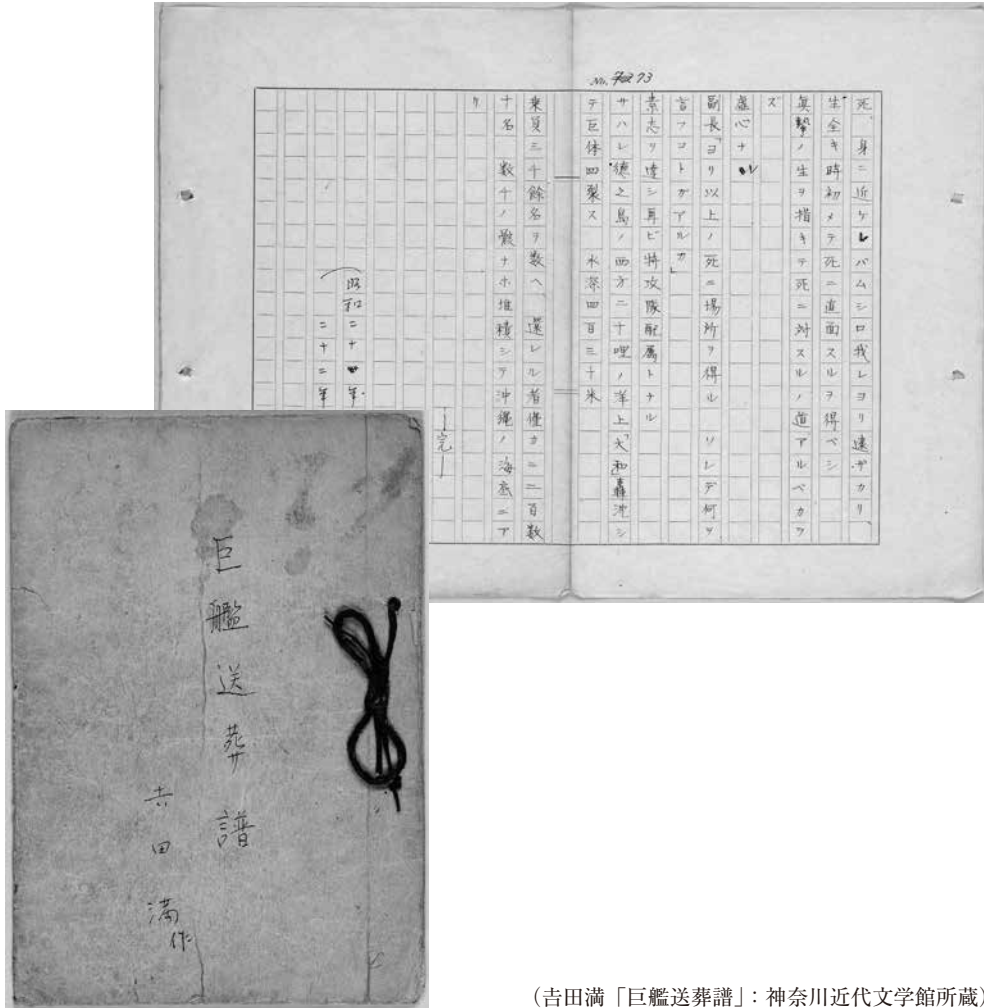 No. 73
死、身ニ近ケレバムシロ我レヨリ遠ザカリ
生全キ時初メテ死ニ直面スルヲ得ベシ
眞摯ノ生ヲ措キテ死ニ対スルノ道アルベカラ
ズ
虚心ナレ
副長「ヨリ以上ノ死ニ場所ヲ得ル　ソレデ何ヲ
言フコトガアルカ」
素志ヲ達シ再ビ特攻隊配属トナル
サハレ徳之島ノ西方二十哩ノ洋上「大和」轟沈シ
テ巨体四裂ス　水深四百三十米
乗員三千餘名ヲ数ヘ　還レル者僅カニ二百数
十名　数千ノ骸ナホ堆積シテ沖縄ノ海底ニア
リ
―完―
（昭和二十四年
二十二年
巨艦送葬譜
吉田満作
（吉田満「巨艦送葬譜」：神奈川近代文学館所蔵）